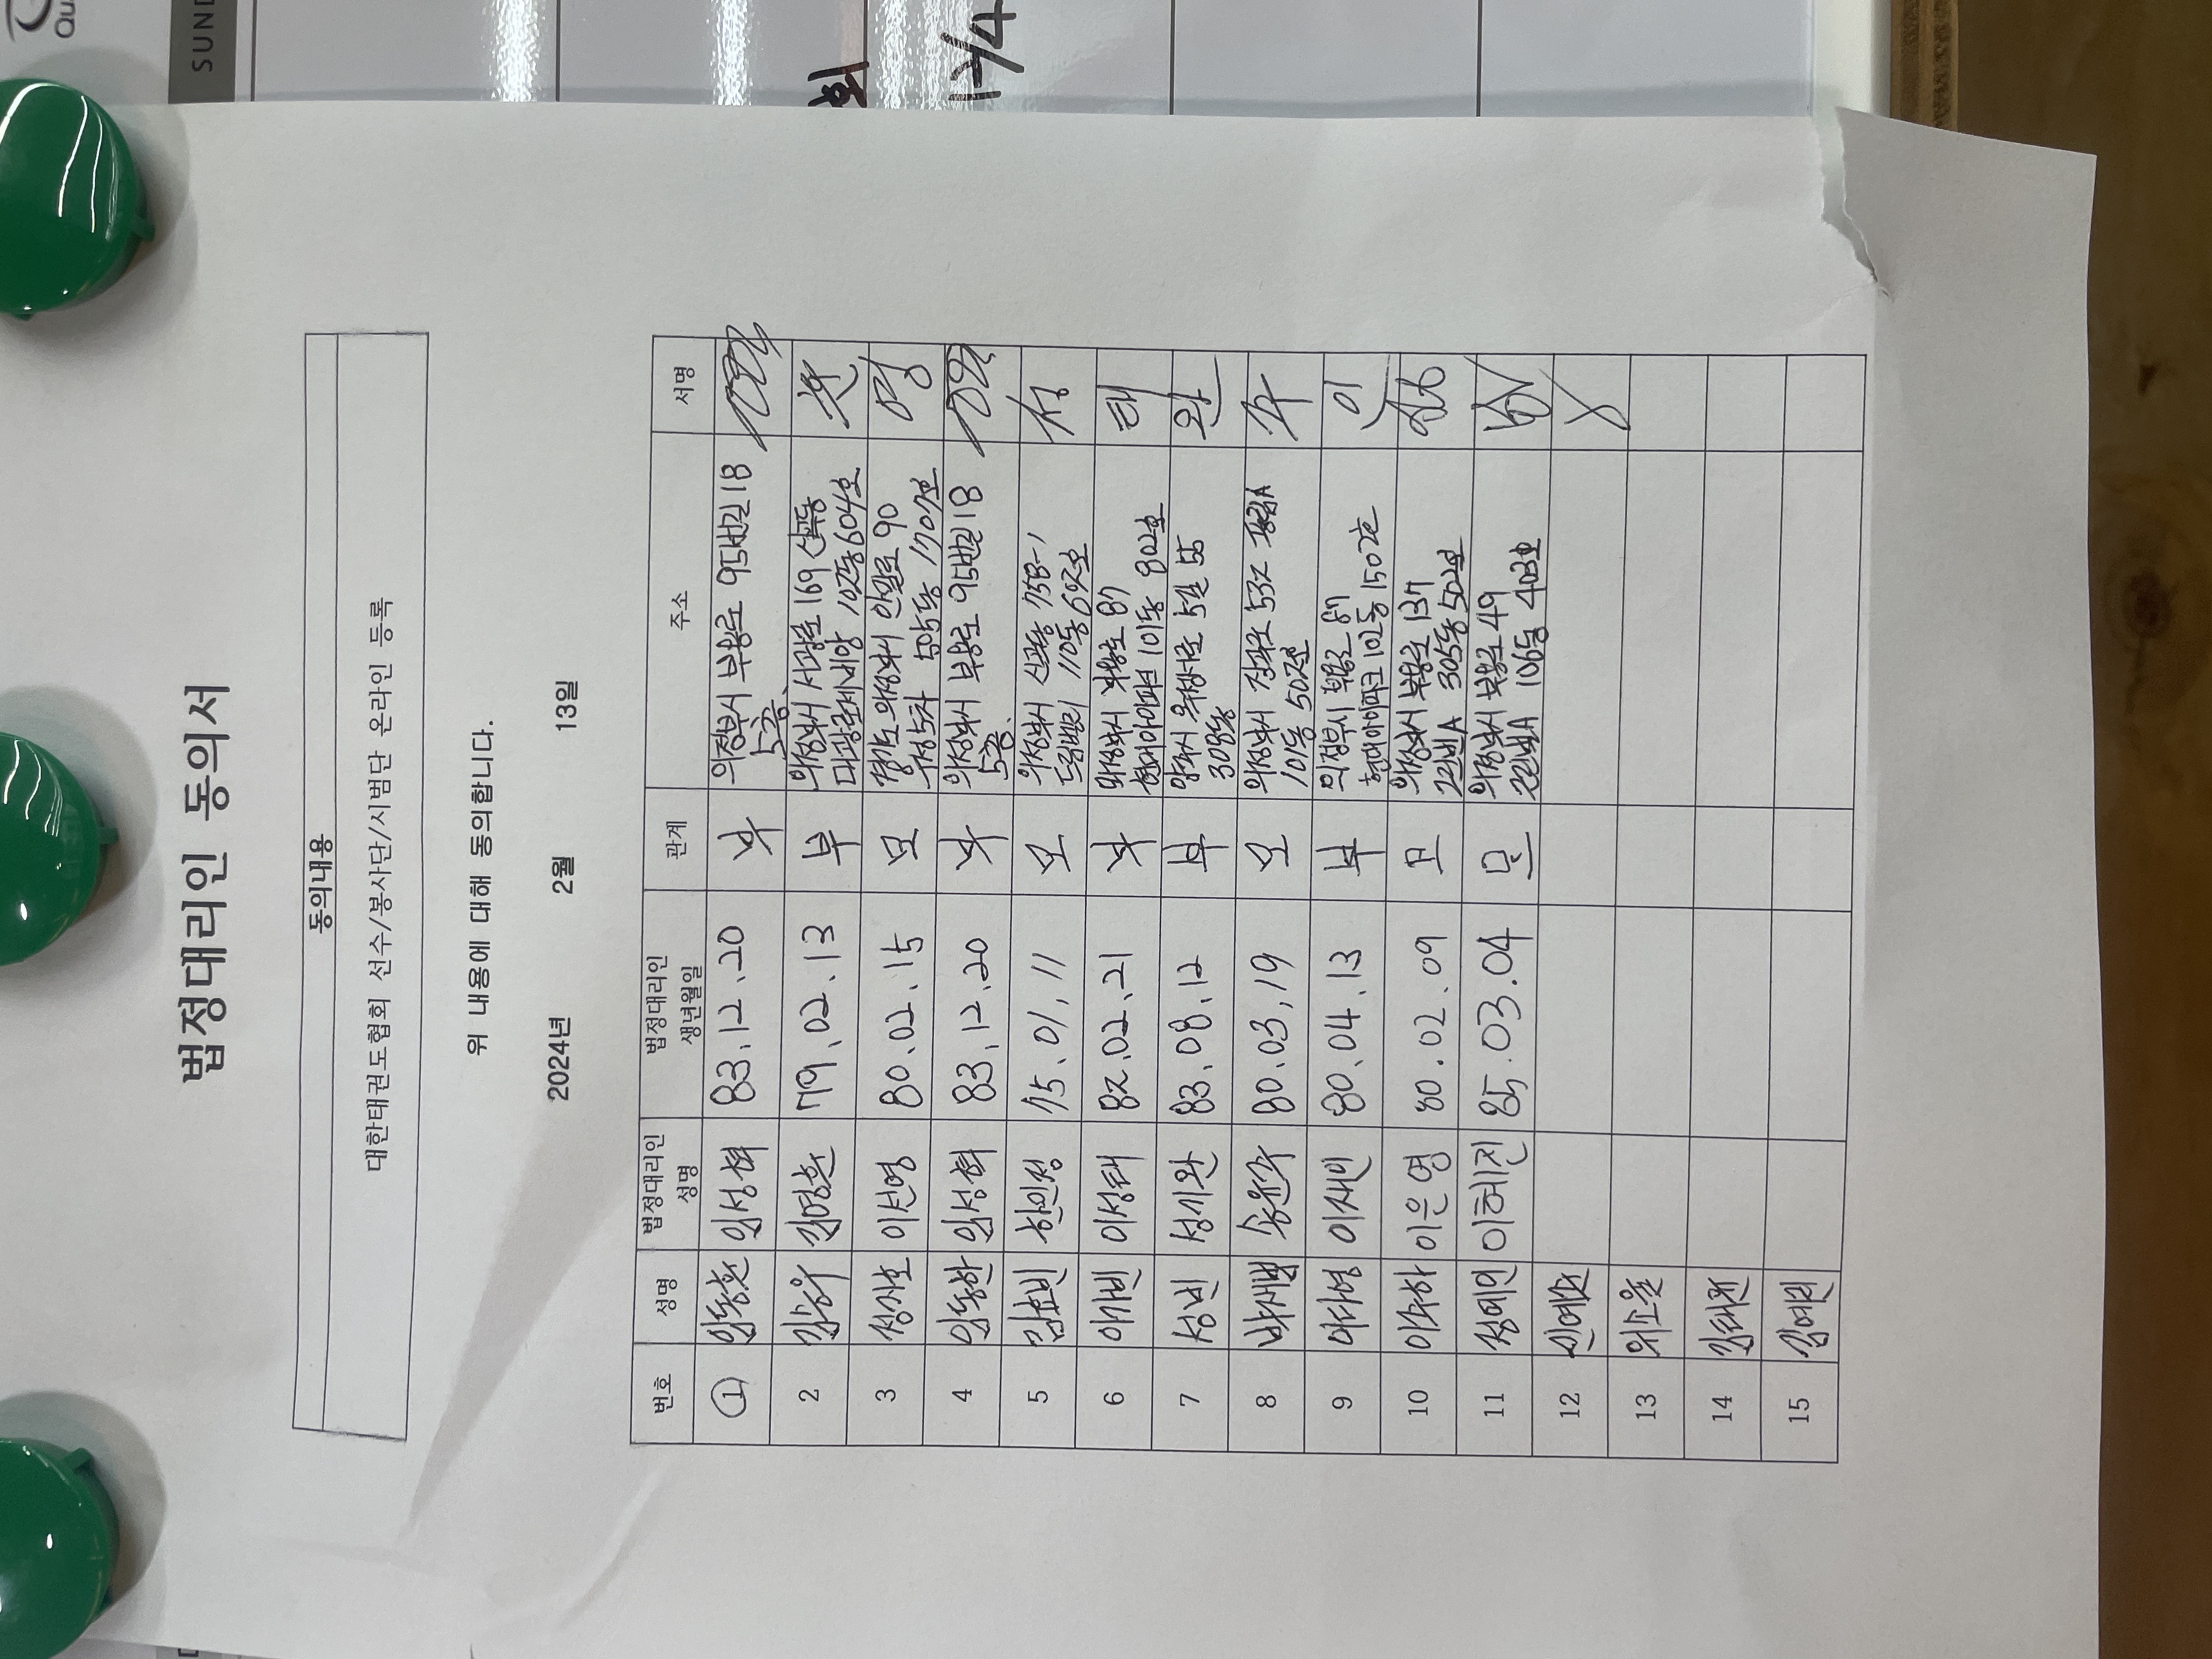 SUND
12/4
법정대리인 동의서
동의내용
대한태권도협회 선수/봉사단/시범단 온라인 등록
위 내용에 대해 동의합니다.
2024년 2월 13일
번호 성명 법정대리인 성명 법정대리인 생년월일 관계 주소 서명
1 임동훈 임성혁 83.12.20 부 의정부시 부용로 95번길 18
5층
2 김명훈 79.02.13 부 의정부시 서광로 169 신곡동
대광로제비앙 102동 604호
3 성지호 이선영 80.02.15 모 경기도 의정부시 안말로 90
505동 1701호
4 임동한 임성혁 83.12.20 부 의정부시 부용로 95번길 18
5층.
5 김효빈 한인정 75.01.11 모 의정부시 신곡동 758-1
110동
6 이가빈 이성태 82.02.21 부 의정부시 부용로 87
현대아이파크 101동 802호 태
7 성빈 성기완 83.08.12 부 양주시 옥정서로 5길 55
308동 완
8 박새봄 송윤수 80.03.19 모 의정부시 장곡로 532
101동 수
9 이다영 이재인 80.04.13 부 의정부시 부용로 87
현대아이파크 102동 1502호 인
10 이주하 이은영 80.02.09 모 의정부시 부용로 137
305동 502호
11 정예인 이혜진 85.03.04 모 의정부시 부용로 49
106동 403호
12
13 위소율
14
15 김예린